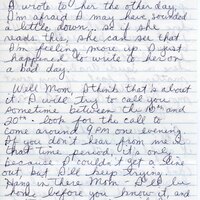 I wrote to her the other day,
I'm afraid I may have sounded
a little down. So if she
reads this, she can see that
I'm feeling more up. I just
happened to write to her on
a bad day.
Well Mom, I think that is about
it. I will try to call you
sometime between the and
20th - look for the call to
come around 9 PM one evening.
If you don't hear from me in
that time period, it's only
because I couldn't get a line
out, but I'll keep trying.
Hang in there Mom - I'll be
home before you know it, and